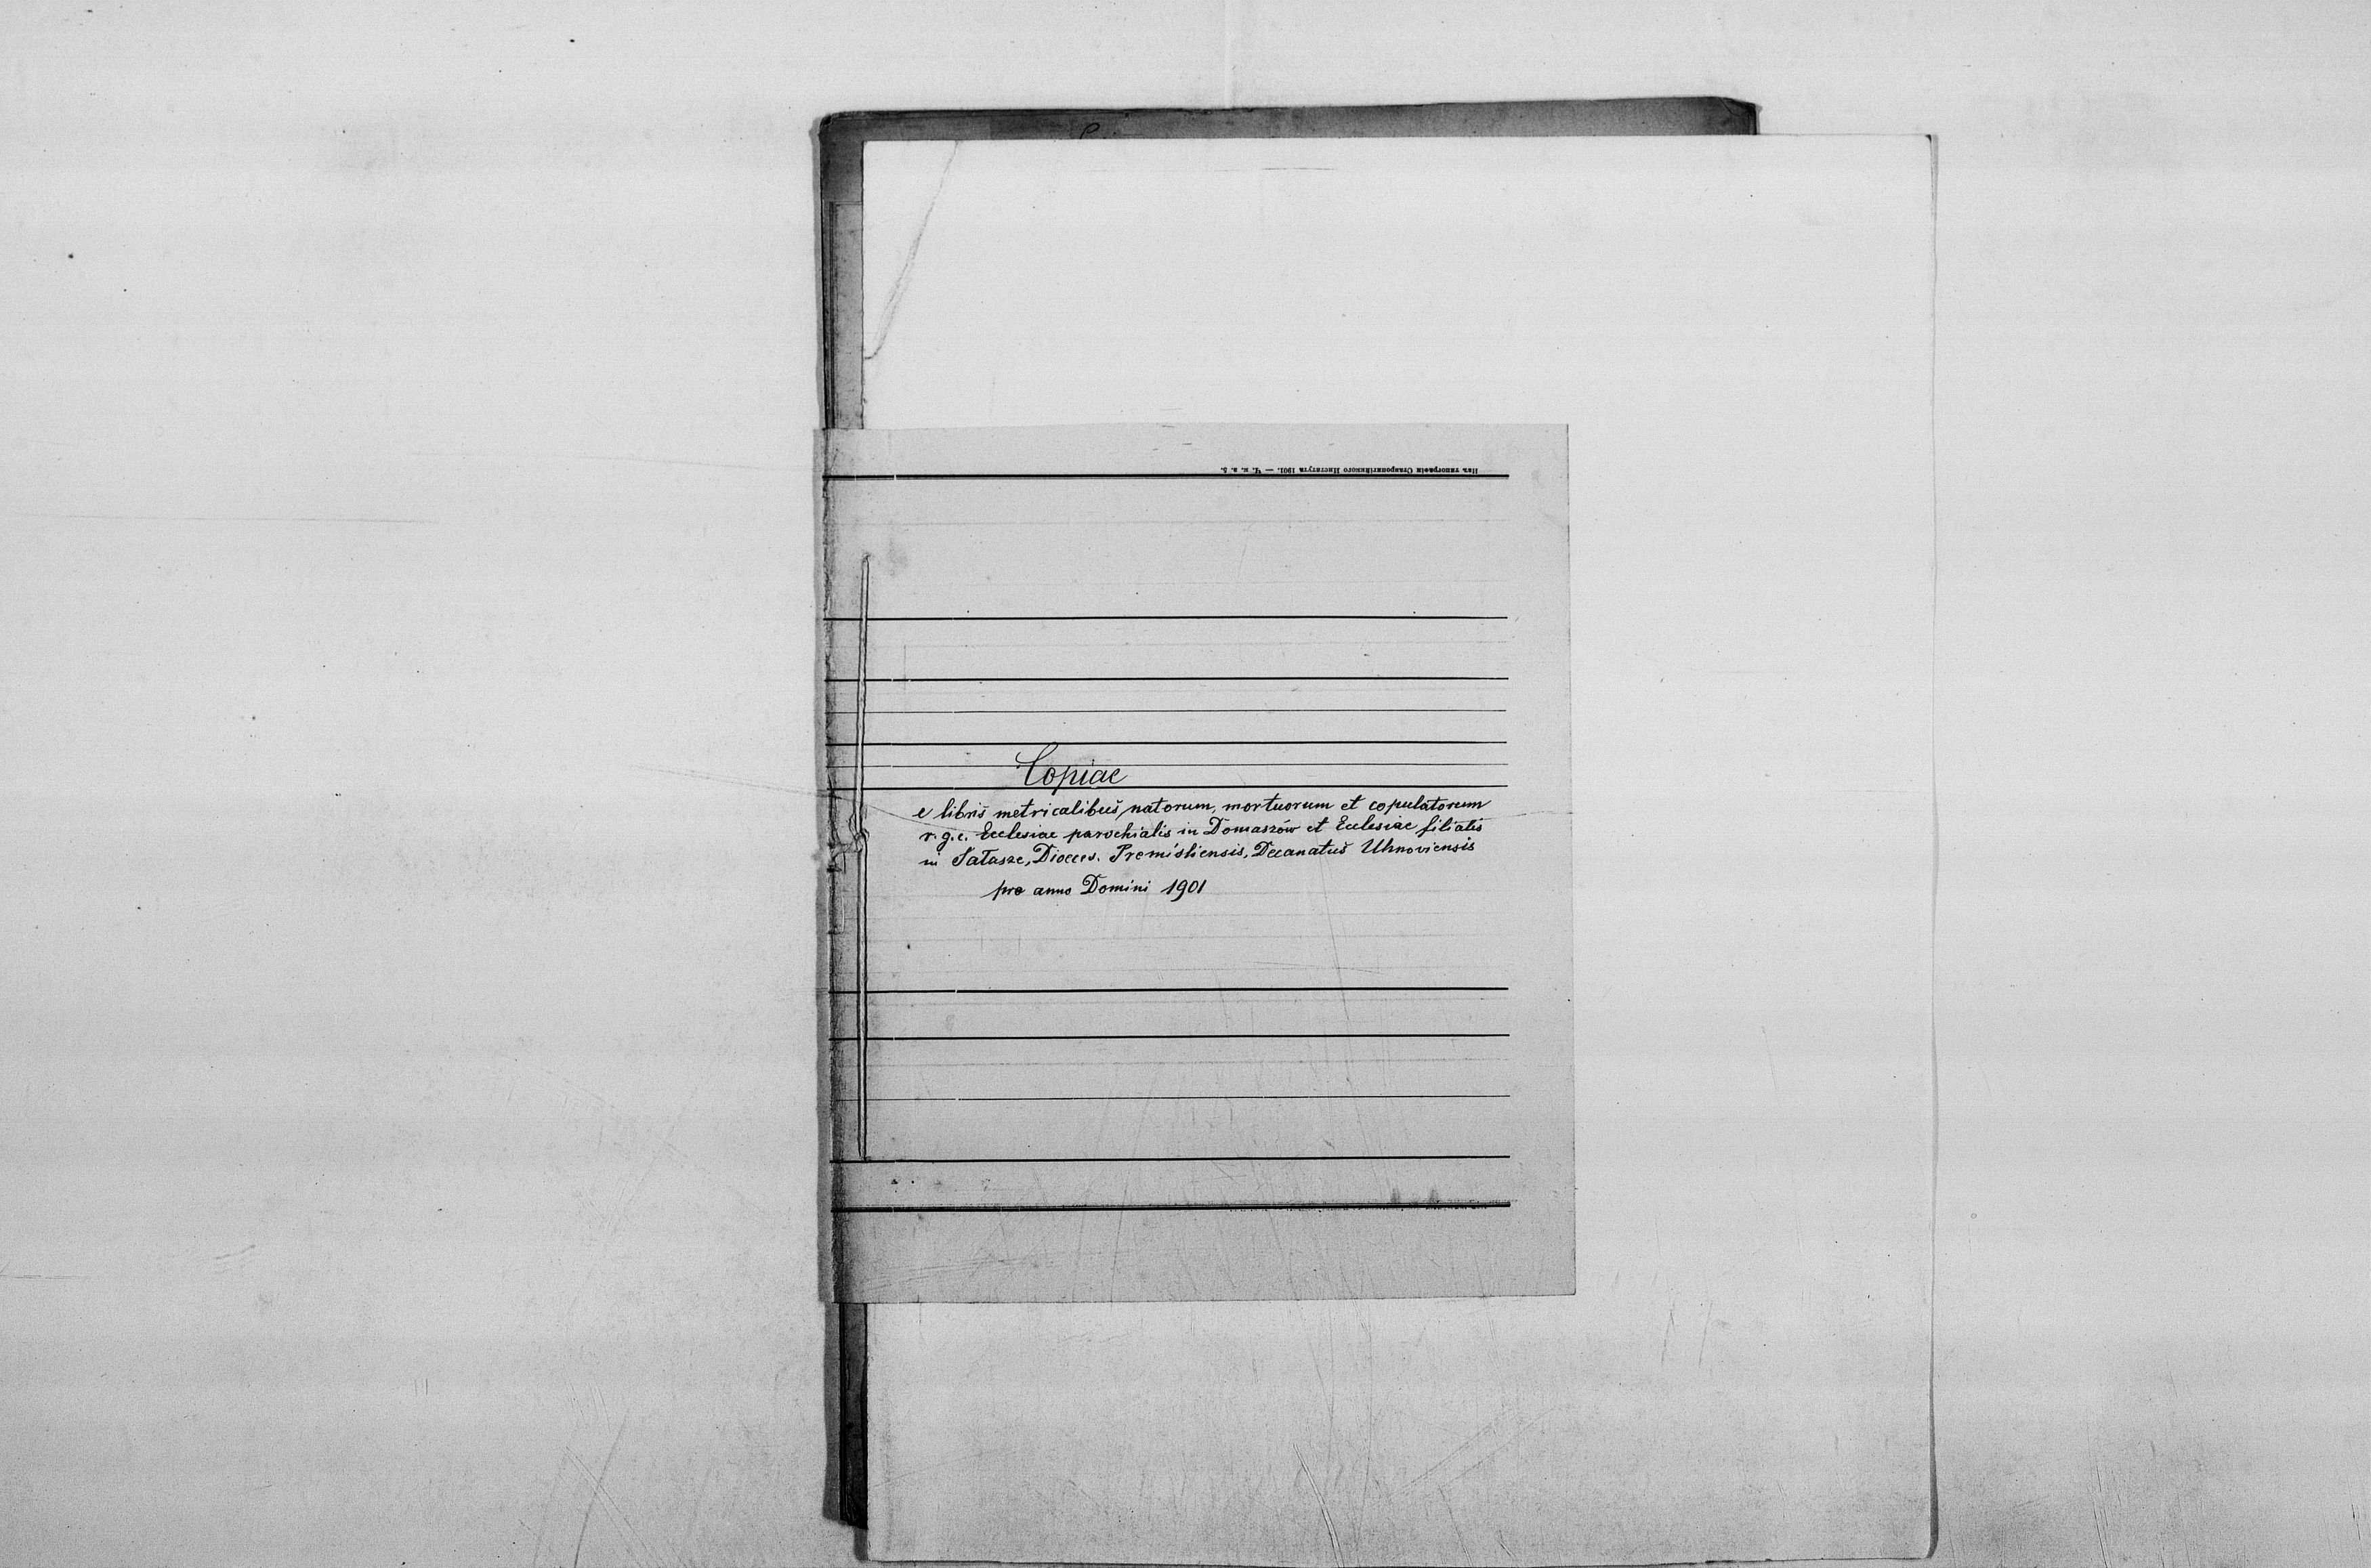 Изъ типографіи Ставропигійского Института 1901. — Ч. н. в. 5.
Copiae
e libris metricalibus natorum, mortuorum et copulatorum
r. g. c. Ecclesiae parochialis in Domaszów et Ecclesiae filialis
in Sałasze, Dioeces. Premisliensis, Decanatus Uhnoviensis
pro anno Domini 1901